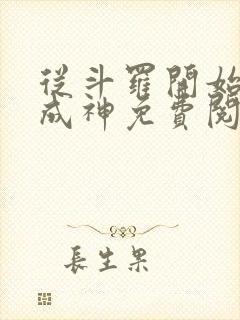 從斗羅開始
成神免費閱
長生果